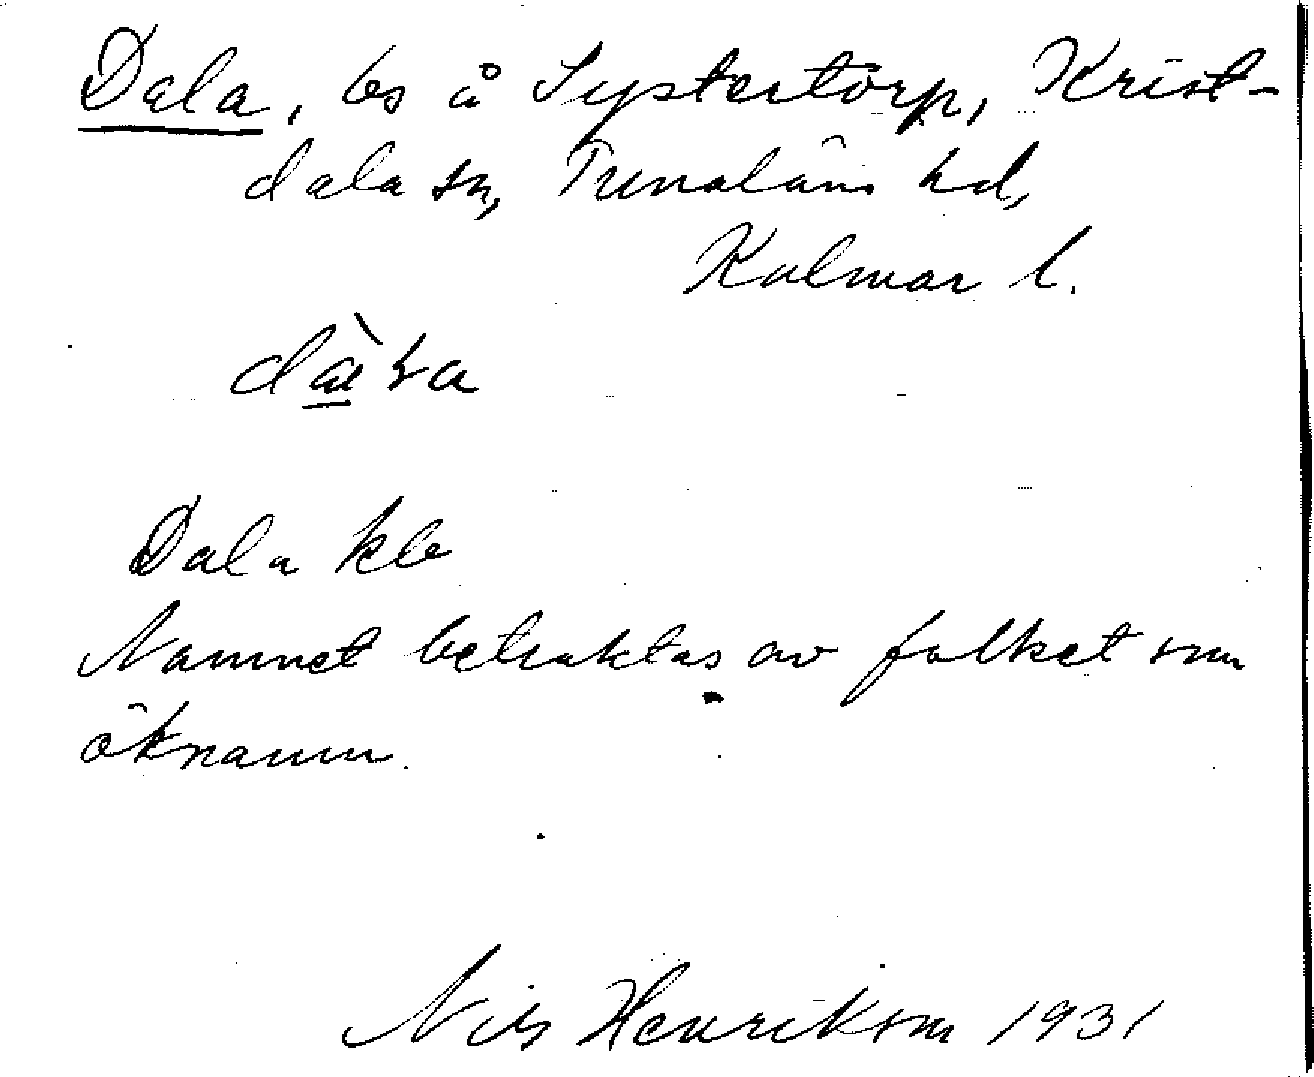 Dala, bs å Systertorp, Krist-
dala sn, Tunaläns hd,
Kalmar l.
Dala kb
Namnet betraktas av folket som
öknamn.
Nils Henrikson 1931